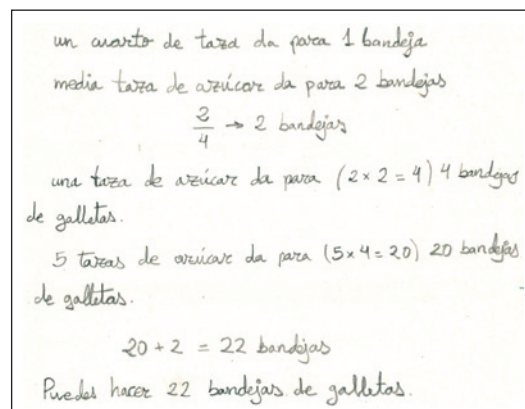 un cuarto de taza da para 1 bandeja
media taza de azúcar da para 2 bandejas
2/4 → 2 bandejas
una taza de azúcar da para (2 × 2 = 4) 4 bandejas
de galletas.
5 tazas de azúcar da para (5 × 4 = 20) 20 bandejas
de galletas.
20 + 2 = 22 bandejas
Puedes hacer 22 bandejas de galletas.